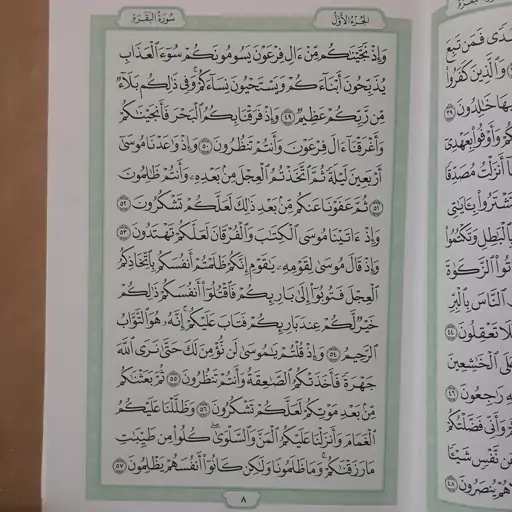 سُورَةُ البَقَرَةِ
الجُزْءُ الأَوَّلُ
وَإِذْ نَجَّيْنَٰكُم مِّنْ ءَالِ فِرْعَوْنَ يَسُومُونَكُمْ سُوٓءَ ٱلْعَذَابِ
يُذَبِّحُونَ أَبْنَآءَكُمْ وَيَسْتَحْيُونَ نِسَآءَكُمْ وَفِى ذَٰلِكُم بَلَآءٌ
مِّن رَّبِّكُمْ عَظِيمٌ ٤٩ وَإِذْ فَرَقْنَا بِكُمُ ٱلْبَحْرَ فَأَنجَيْنَٰكُمْ
وَأَغْرَقْنَآ ءَالَ فِرْعَوْنَ وَأَنتُمْ تَنظُرُونَ ٥٠ وَإِذْ وَٰعَدْنَا مُوسَىٰٓ
أَرْبَعِينَ لَيْلَةً ثُمَّ ٱتَّخَذْتُمُ ٱلْعِجْلَ مِنۢ بَعْدِهِۦ وَأَنتُمْ ظَٰلِمُونَ
٥١ ثُمَّ عَفَوْنَا عَنكُم مِّنۢ بَعْدِ ذَٰلِكَ لَعَلَّكُمْ تَشْكُرُونَ ٥٢
وَإِذْ ءَاتَيْنَا مُوسَى ٱلْكِتَٰبَ وَٱلْفُرْقَانَ لَعَلَّكُمْ تَهْتَدُونَ ٥٣
وَإِذْ قَالَ مُوسَىٰ لِقَوْمِهِۦ يَٰقَوْمِ إِنَّكُمْ ظَلَمْتُمْ أَنفُسَكُم بِٱتِّخَاذِكُمُ
ٱلْعِجْلَ فَتُوبُوٓا۟ إِلَىٰ بَارِئِكُمْ فَٱقْتُلُوٓا۟ أَنفُسَكُمْ ذَٰلِكُمْ
خَيْرٌ لَّكُمْ عِندَ بَارِئِكُمْ فَتَابَ عَلَيْكُمْ إِنَّهُۥ هُوَ ٱلتَّوَّابُ
ٱلرَّحِيمُ ٥٤ وَإِذْ قُلْتُمْ يَٰمُوسَىٰ لَن نُّؤْمِنَ لَكَ حَتَّىٰ نَرَى ٱللَّهَ
جَهْرَةً فَأَخَذَتْكُمُ ٱلصَّٰعِقَةُ وَأَنتُمْ تَنظُرُونَ ٥٥ ثُمَّ بَعَثْنَٰكُم
مِّنۢ بَعْدِ مَوْتِكُمْ لَعَلَّكُمْ تَشْكُرُونَ ٥٦ وَظَلَّلْنَا عَلَيْكُمُ
ٱلْغَمَامَ وَأَنزَلْنَا عَلَيْكُمُ ٱلْمَنَّ وَٱلسَّلْوَىٰ كُلُوا۟ مِن طَيِّبَٰتِ
مَا رَزَقْنَٰكُمْ وَمَا ظَلَمُونَا وَلَٰكِن كَانُوٓا۟ أَنفُسَهُمْ يَظْلِمُونَ ٥٧
٨
فَمَن تَبِعَ
وَٱلَّذِينَ كَفَرُوا۟
خَٰلِدُونَ ٣٩
وَأَوْفُوا۟ بِعَهْدِىٓ
أَنزَلْتُ مُصَدِّقًا
تَشْتَرُوا۟ بِـَٔايَٰتِى
بِٱلْبَٰطِلِ وَتَكْتُمُوا۟
ٱلزَّكَوٰةَ
ٱلنَّاسَ بِٱلْبِرِّ
تَعْقِلُونَ ٤٤
عَلَى ٱلْخَٰشِعِينَ
رَٰجِعُونَ ٤٦
وَأَنِّى فَضَّلْتُكُمْ
عَن نَّفْسٍ شَيْـًٔا
هُمْ يُنصَرُونَ ٤٨